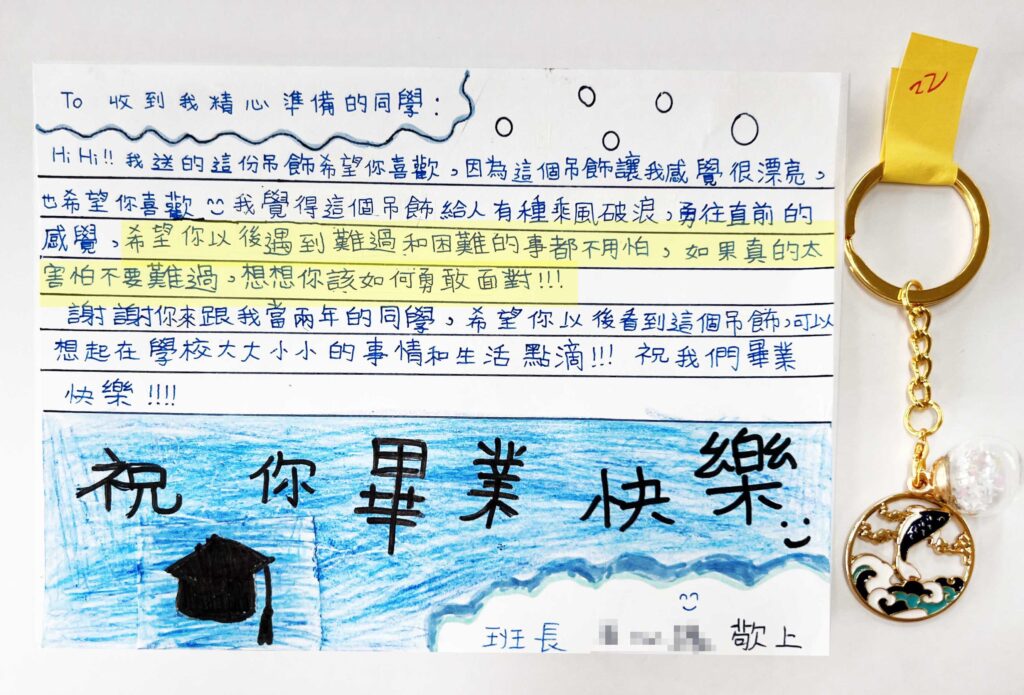 To 收到我精心準備的同學:
22
Hi Hi!! 我送的這份吊飾希望你喜歡，因為這個吊飾讓我感覺很漂亮，
也希望你喜歡 我覺得這個吊飾給人有種乘風破浪，勇往直前的
感覺，希望你以後遇到難過和困難的事都不用怕，如果真的太
害怕不要難過，想想你該如何勇敢面對!!!
謝謝你來跟我當兩年的同學，希望你以後看到這個吊飾，可以
想起在學校大大小小的事情和生活點滴!!! 祝我們畢業
快樂!!!!
祝你畢業快樂
班長 敬上